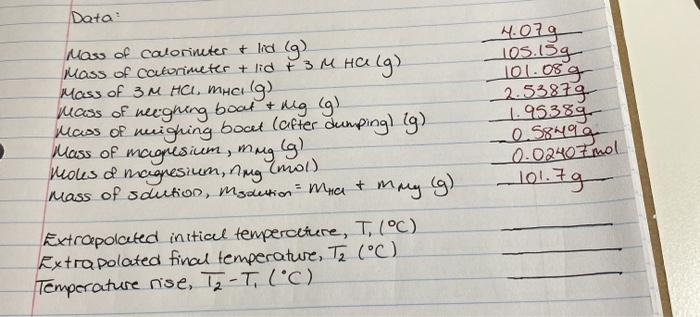 Data:
Mass of calorimeter + lid (g) 4.07g
Mass of calorimeter + lid + 3 M HCl (g) 105.15g
Mass of 3 M HCl, mHCl (g) 101.08g
Mass of weighing boat + Mg (g) 2.5387g
Mass of weighing boat (after dumping) (g) 1.9538g
Mass of magnesium, mMg (g) 0.5849g
Moles of magnesium, nMg (mol) 0.02407mol
Mass of solution, msolution = mHCl + mMg (g) 101.7g
Extrapolated initial temperature, T₁ (°C)
Extrapolated final temperature, T₂ (°C)
Temperature rise, T₂-T₁ (°C)